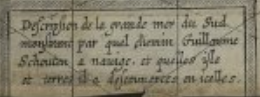 Description de la grande mer du Sud
monstrant par quel chemin Guillaume
Schouten a navigé, et quelles isle
et terres il a descouvertes en icelles.